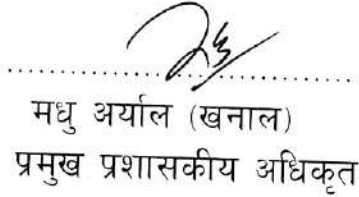 मधु अर्याल (खनाल)
प्रमुख प्रशासकीय अधिकृत